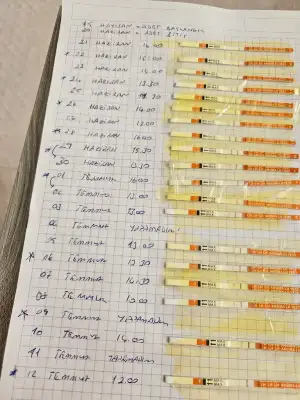 15 HAZİRAN = ADET BAŞLANGIÇ
20 HAZİRAN = ADET BİTİŞ
21 HAZİRAN 16.00
* 22 HAZİRAN 16:00
23 HAZİRAN 16:00
* 24 HAZİRAN 13.30
25 HAZİRAN
* 26 HAZİRAN 14.00
27 HAZİRAN 12.00
* 28 HAZİRAN 16:00
29 HAZİRAN 15.30
30 HAZİRAN 13.30
* 01 TEMMUZ 16:00
02 TEMMUZ 13.00
03 TEMMUZ
04 TEMMUZ YAPAMADIM
05 TEMMUZ 13.00
* 06 TEMMUZ 13.30
07 TEMMUZ 14.30
08 TEMMUZ 13.00
* 09 TEMMUZ YAPAMADIM
10 TEMMUZ 14.00
11 TEMMUZ YAPAMADIM
* 12 TEMMUZ 12.00